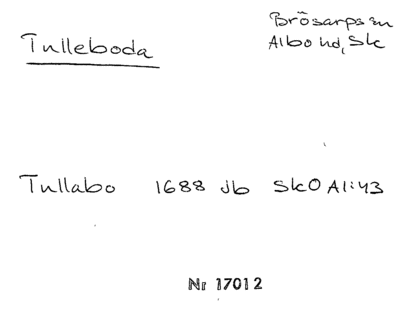 Tulleboda
Brösarps sn
Albo hd, Sk
Tullabo 1688 jb SkO Al:43
Nr 17012